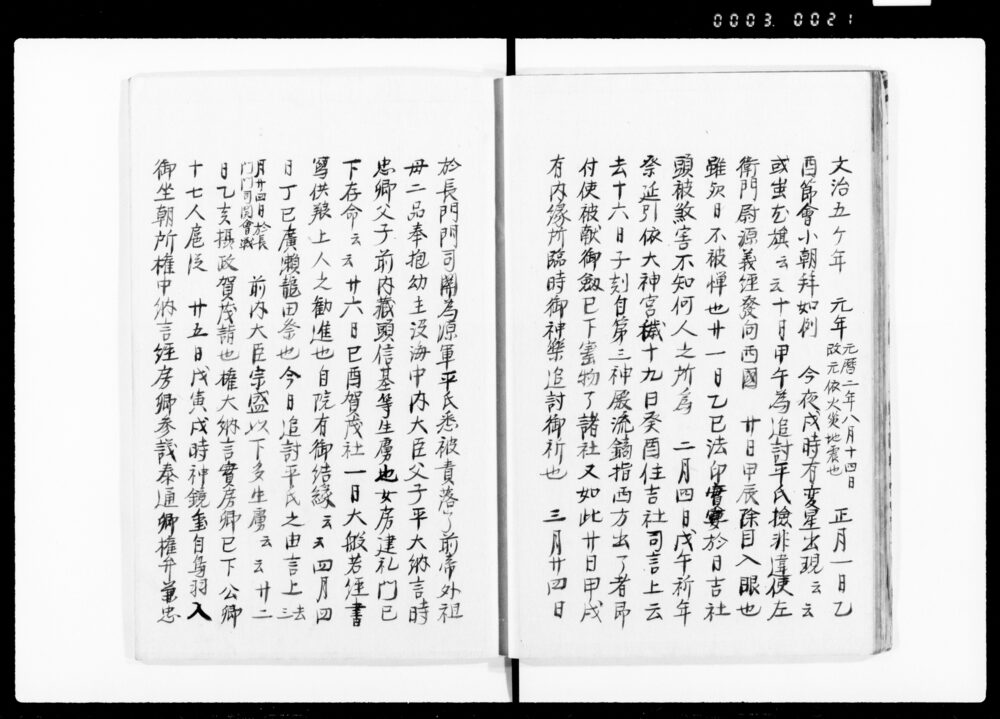 0003.0021
文治五ケ年 元年 元暦二年八月十四日 改元依火災地震也 正月一日乙
酉節會小朝拜如例 今夜戌時有変星出現云云
或蚩尤旗云云十日甲午為追討平氏檢非違使左
衛門尉源義經發向西國 廿日甲辰除目入眼也
雖欠日不被憚也廿一日乙巳法印實寔於日吉社
頭被煞害不知何人之所為 二月四日戊午祈年
祭延引依大神宮穢十九日癸酉住吉社司言上云
去十六日子刻自第三神殿流鏑指西方出了者即
付使被獻御劔已下寳物了諸社又如此廿日甲戌
有内縁所臨時御神樂追討御祈也 三月廿四日
於長門門司関為源軍平氏悉被責落了前帝外祖
母二品奉抱幼主没海中内大臣父子平大納言時
忠卿父子前内藏頭信基等生虜也女房建礼門已
下存命云云廿六日己酉賀茂社一日大般若經書
寫供養上人之勸進也自院有御結縁云云四月四
日丁巳廣瀬龍田祭也今日追討平氏之由言上去三
月廿四日於長門門司関會戰 前内大臣宗盛以下多生虜云云廿二
日乙亥攝政賀茂詣也權大納言實房卿已下公卿
十七人扈従 廿五日戊寅戌時神鏡璽自鳥羽入
御坐朝所權中納言經房卿參議泰通卿權弁兼忠